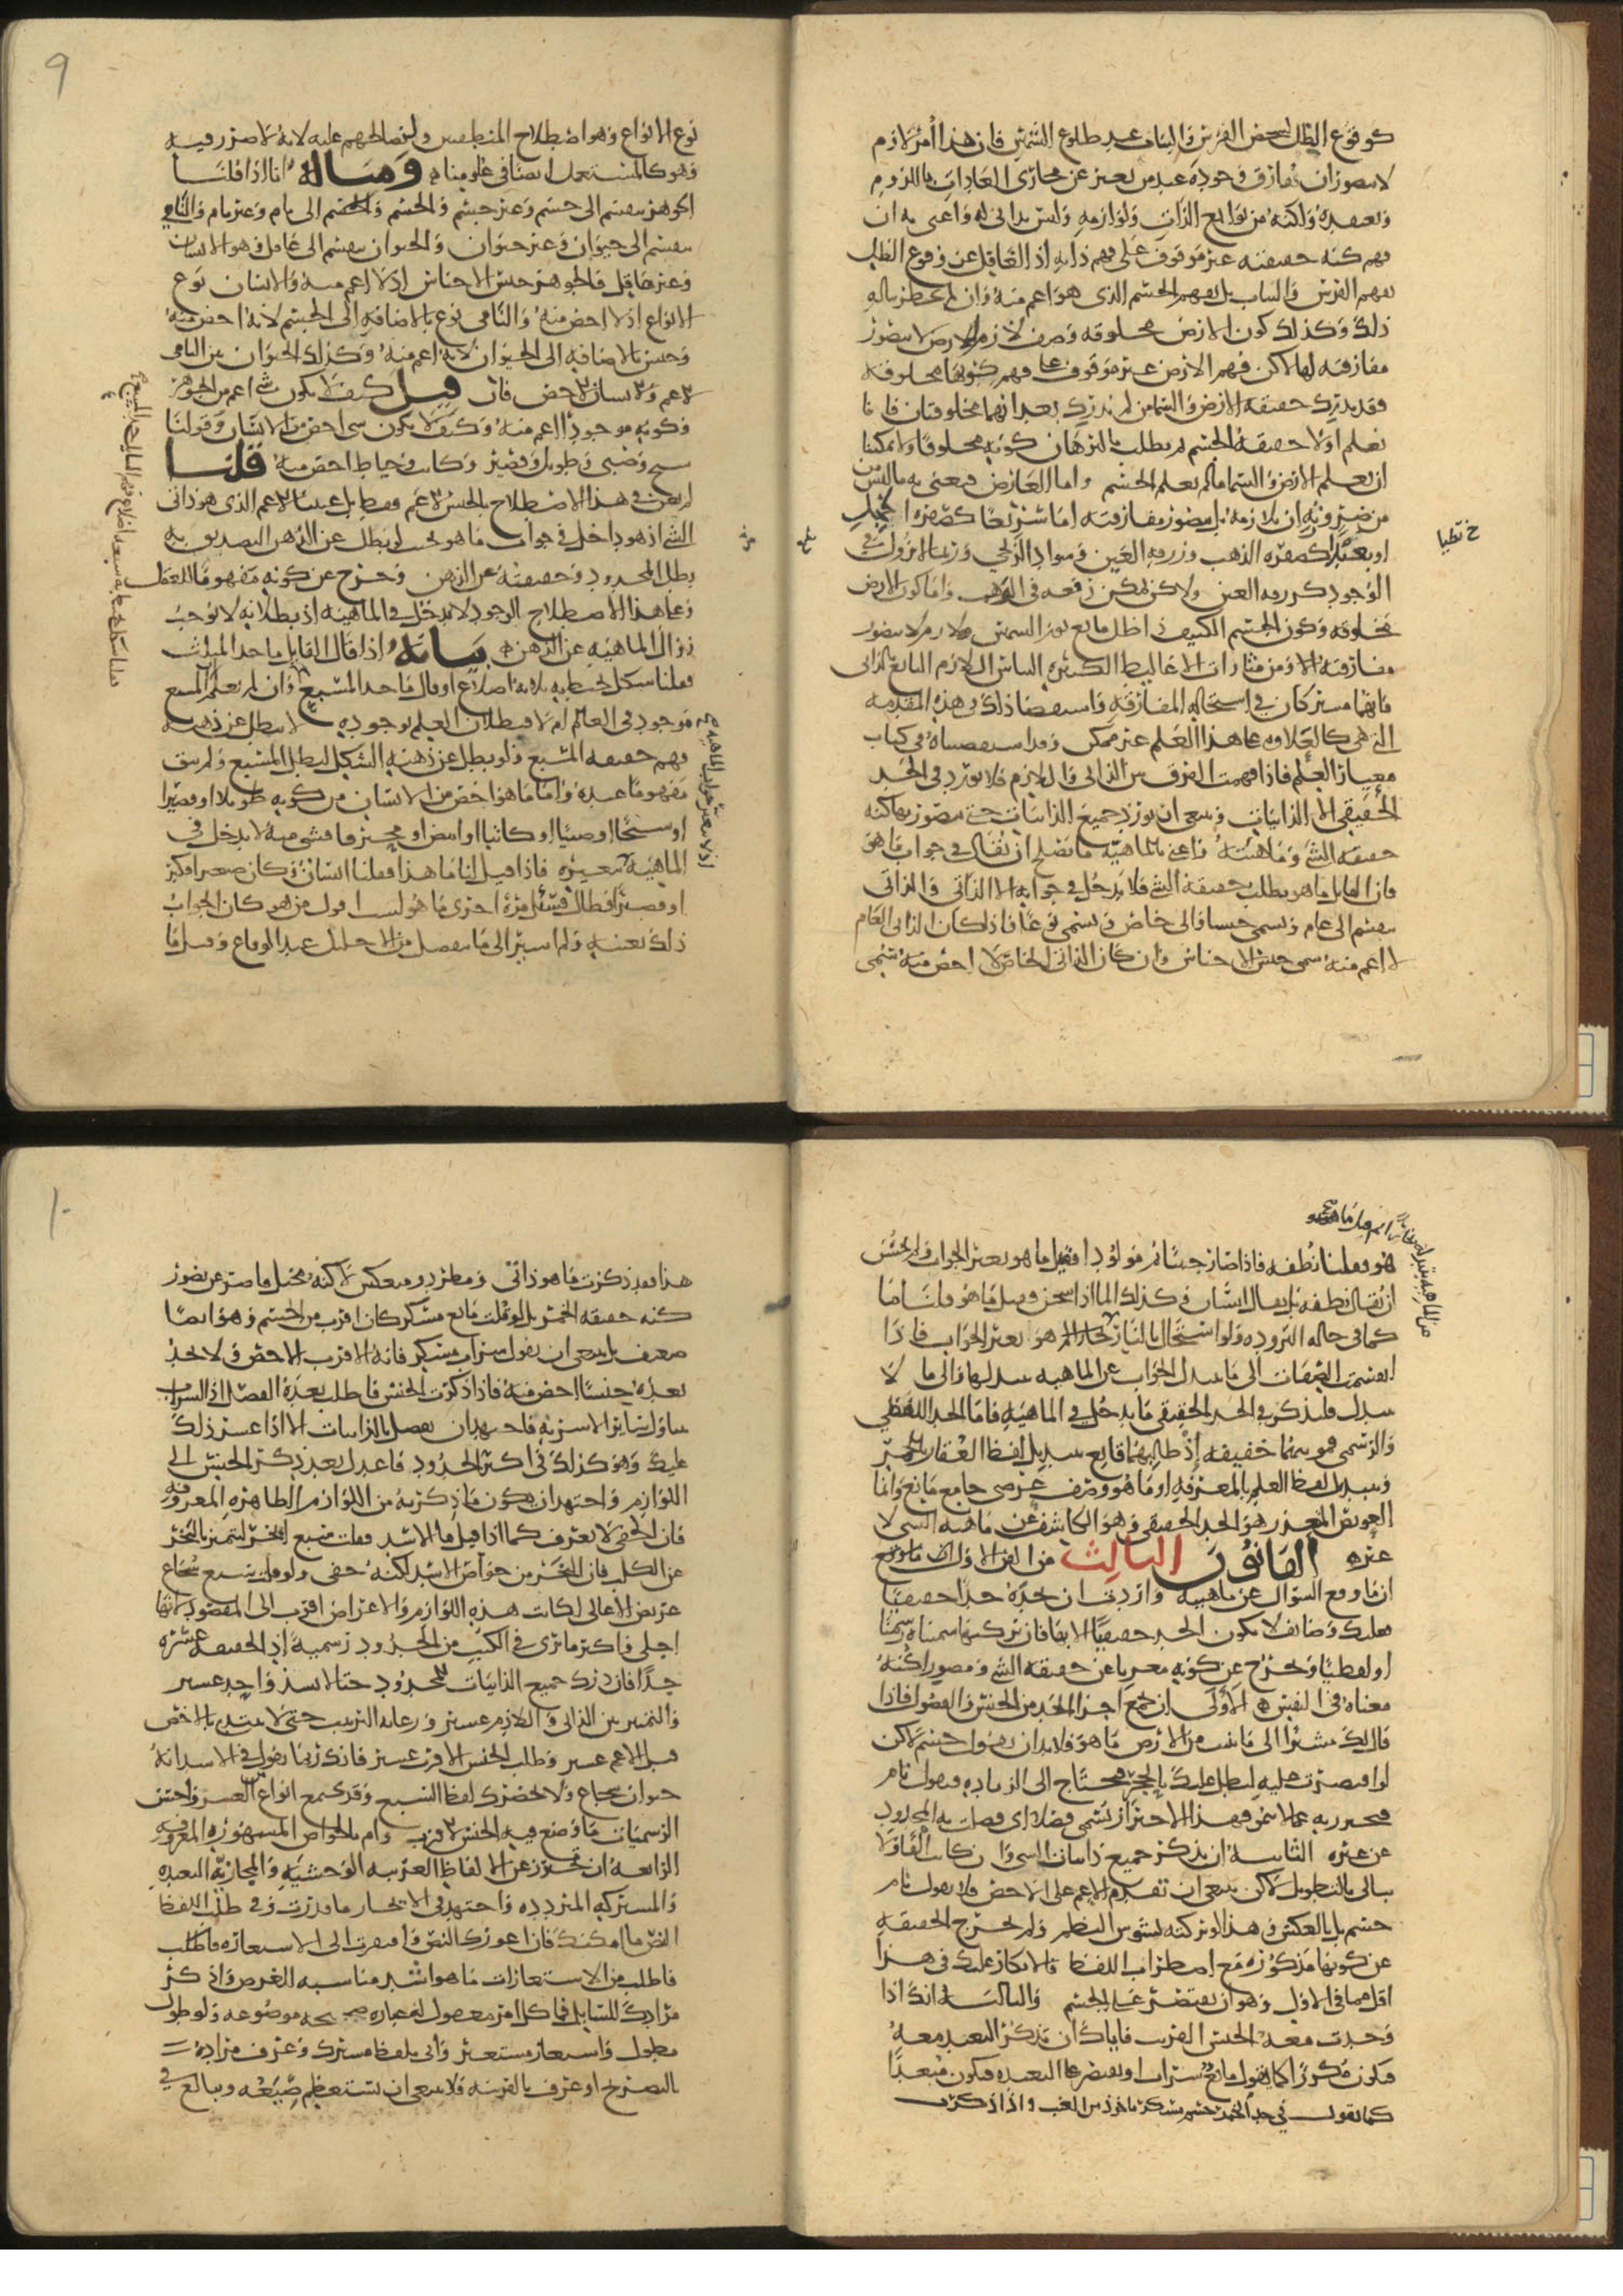 كوقوع الظل لشخص الفرس والنبات عند طلوع الشمس فان هذا أمر لازم
لا يتصوران يفارق وجوده عند من يعبر عن مجارى العادات باللزوم
ويعتقده ولكنه من توابع الذات ولوازمه وليس بذاتى له واعنى به ان
فهم كنه حقيقته غير موقوف على فهم ذلك له اذ الغافل عن وقوع الظل
يفهم الفرس والنبات بل يفهم الجسم الذى هو اعم منه وان لم يخطر بباله
ذلك وكذلك كون الارض مخلوقه وصف لازم للارض لا يتصور
مفارقته لها لاكن فهم الارض غير موقوف على فهم كونها مخلوقة
فقد يدرك حقيقة الارض والسما من لم يدرك بعد انهما مخلوقتان فانا
نعلم اولا حقيقة الجسم ثم نطلب بالبرهان كونه مخلوقا ولا يمكننا
ان نعلم الارض والسما ما لم نعلم الجسم واما العارض فنعنى به ما ليس
من ضرورته ان يلازم بل يتصور مفارقته اما سريعا كحمرة الخجل
او بطيا كصفرة الذهب وزرقة العين وسواد الزنجى وربما لا يزول فى
الوجود كزرقة العين ولاكن يمكن رفعه فى الوهم واما كون الارض
مخلوقه وكون الجسم الكثيف ذا ظل مانع نور الشمس فلازم لا يتصور
مفارقته الا ومن مثارات الاغاليط الكثيره التباس اللازم التابع بالذاتى
فانهما مشتركان فى استحاله المفارقه واستقصا ذلك فى هذه المقدمه
التى هى كالعلاوه على هذا العلم غير ممكن وقد استقصيناه فى كتاب
معيار العلم فاذا فهمت الفرق بين الذاتى واللازم فلا تورد فى الحد
الحقيقى الا الذاتيات وينبغى ان تورد جميع الذاتيات حتى يتصور بها كنه
حقيقة الشى وماهيته واعنى بالماهيه ما يصلح ان يقال فى جواب ما هو
فان القايل ما هو يطلب حقيقة الشى فلا يدخل فى جوابه الا الذاتى والذاتى
ينقسم الى عام ويسمى جنسا والى خاص ويسمى نوعا فاذا كان الذاتى العام
لا اعم منه سمى جنس الاجناس وان كان الذاتى الخاص لا اخص منه سمى
خ بطيا
٩
نوع الانواع وهو اصطلاح المنطقيين ولنصالحهم عليه لانه لا ضرر فيه
وهو كالمستعمل ايضا فى علومنا ومثاله انا اذا قلنا
الجوهر ينقسم الى جسم وغير جسم والجسم ينقسم الى نام وغير نام والنامى
ينقسم الى حيوان وغير حيوان والحيوان ينقسم الى عاقل وهو الانسان
وغير عاقل فالجوهر جنس الاجناس اذ لا اعم منه والانسان نوع
الانواع اذ لا اخص منه والنامى نوع بالاضافه الى الجسم لانه اخص منه
وجنس بالاضافه الى الحيوان لانه اعم منه وكذلك الحيوان بين النامى
الاعم والانسان الاخص فان قيل كيف لا يكون شى اعم من الجوهر
وكونه موجودا اعم منه وكيف لا يكون شى اخص من الانسان وقولنا
شيخ وصبى وطويل وقصير وكاتب وخياط اخص منه قلنا
لم نعن فى هذا الاصطلاح بالجنس الاعم فقط بل عنينا الاعم الذى هو ذاتى
الشى اذ هو داخل فى جواب ما هو بحيث لو بطل عن الذهن التصديق به
بطل المحدود وحقيقته عن الذهن وخرج عن كونه مفهوما للعقل
وعلى هذا الاصطلاح الوجود لا يدخل فى الماهيه اذ بطلانه لا يوجب
زوال الماهيه عن الذهن بيانه اذا قال القايل ما حد المثلث
فقلنا شكل يحيط به ثلاثه اضلاع او قال ما حد المسبع وان لم يعلم المسبع
موجود فى العالم ام لا فبطلان العلم بوجوده لا يبطل عن ذهنه
فهم حقيقه المسبع ولو بطل عن ذهنه الشكل لبطل المسبع ولم يبق
مفهوما عنده واما ما هو اخص من الانسان من كونه طويلا او قصيرا
او شيخا او صبيا او كاتبا او ابيض او محترفا فشى منه لا يدخل فى
الماهيه فاذا قيل لنا ما هذا فقلنا انسان وكان صغيرا فكبر
او قصيرا فطال فسئل مرة اخرى ما هو لست اقول من هو كان الجواب
ذلك بعينه ولو اشير الى ما ينفصل من الاحليل عند الوقاع وقيل ما
اذ لا يتغير جواب الماهية
هو فقلنا نطفه فاذا صار جنينا ثم مولودا فقيل ما هو يغير الجواب ولم يحسن
ان يقال نطفه بل يقال انسان وكذلك الما اذا سخن وقيل ما هو قلنا ما
كما فى حاله البروده ولو استحال بالنار بخارا ثم هوا يغير الجواب فاذا
انقسمت الصفات الى ما يتبدل الجواب عن الماهيه بتبدلها والى ما لا
يتبدل فلنذكر فى الحد الحقيقى ما يدخل فى الماهيه فاما الحد اللفظى
والرسمى فمونتهما خفيفه إذ طالبهما قانع بتبديل لفظ العقار بالخمر
وتبديل لفظ العلم بالمعرفه او ما هو وصف عرضى جامع مانع وانما
العويص المتعذر هو الحد الحقيقى وهو الكاشف عن ماهيه الشى لا
غيره القانون الثالث من الفن الاول ان ما وقع
ان ما وقع السؤال عن ماهيته واردت ان تحده حدا حقيقيا
فعليك وظايف لا يكون الحد حقيقيا الا بها فان تركتها سميناه رسميا
او لفظيا ويخرج عن كونه معربا عن حقيقه الشى ومصورا كنه
معناه فى النفس الاولى ان تجمع اجزا الحد من الجنس والفصول فاذا
قال لك مشيرا الى ما ينبت من الارض ما هو فلا بد ان تقول جسم لاكن
لو اقتصرت عليه لبطل عليك بالحجر فتحتاج الى الزياده فتقول نام
فتحترز به عما لا ينمو فهذا الاحتراز يسمى فصلا اى فصلت به المحدود
عن غيره الثانيه ان تذكر جميع ذاتيات الشى وان كانت ألفا ولا
تبالى بالتطويل لاكن ينبغى ان تقدم الاعم على الاخص فلا تقول نام
جسم بل بالعكس وهذا لو تركته لتشوش النظم ولم تخرج الحقيقه
عن كونها مذكوره مع اضطراب اللفظ فالانكار عليك فى هذا
اقل مما فى الاول وهو ان تقتصر على الجسم والثالثه انك اذا
وجدت معه الجنس القريب فاياك ان تذكر البعيد معه
فتكون مكررا كما تقول مايع شراب او تقتصر على البعيد فتكون مبعدا
كما تقول فى حد الخمر جسم مسكر ماخوذ من العنب واذا ذكرت
١٠
هذا فقد ذكرت ما هو ذاتى ومطرد ومنعكس لاكنه مختل قاصر عن تصور
كنه حقيقه الخمر بل لو قلت مايع مسكر كان اقرب من الجسم وهو ايضا
ضعيف بل ينبغى ان تقول شراب مسكر فانه الاقرب الاخص ولا تجد
بعده جنسا اخص منه فاذا ذكرت الجنس فاطلب بعده الفصل اذ الشراب
يتناول ساير الاشربه فاجتهد ان تفصل بالذاتيات الا اذا عسر ذلك
عليك وهو كذلك فى اكثر الحدود فاعدل بعد ذكر الجنس الى
اللوازم واجتهد ان يكون ما ذكرته من اللوازم الظاهره المعروفه
فان الخفى لا يعرف كما اذا قيل ما الاسد فقلت سبع ابخر ليتميز بالبخر
عن الكلب فان البخر من خواص الاسد لكنه خفى ولو قلت سبع شجاع
عريض الاعالى لكانت هذه اللوازم والاعراض اقرب الى المقصود لانها
اجلى واكثر ما ترى فى الكتب من الحدود رسميه إذ الحقيقه عسره
جدا فان درك جميع الذاتيات للمحدود حتى لا يشذ واحد عسير
والتمييز بين الذاتى واللازم عسير ورعايه الترتيب حتى لا يبتدى بالاخص
قبل الاعم عسر وطلب الجنس الاقرب عسير فانك ربما تقول فى الاسد انه
حيوان شجاع ولا يحضرك لفظ السبع وقد تجمع انواع من العسر واحسن
الرسميات ما وضع فيه الجنس الاقرب وتمم بالخواص المشهوره المعروفه
الرابعه ان تحترز عن الالفاظ الغريبه الوحشيه والمجازيه البعيده
والمشتركه المتردده واجتهد فى الايجاز ما قدرت وفى طلب اللفظ
النص ما امكنك فان اعوزك النص وافتقرت الى الاستعاره فاطلب
فاطلب من الاستعارات ما هو اشد مناسبه للغرض واذكر
مرادك للسايل فما كل امر معقول له عباره صريحه موضوعه ولو طول
مطول واستعار مستعير واتى بلفظ مشترك وعرف مراده
بالتصريح او عرف بالقرينه فلا ينبغى ان يستعظم صنيعه ويبالغ فى